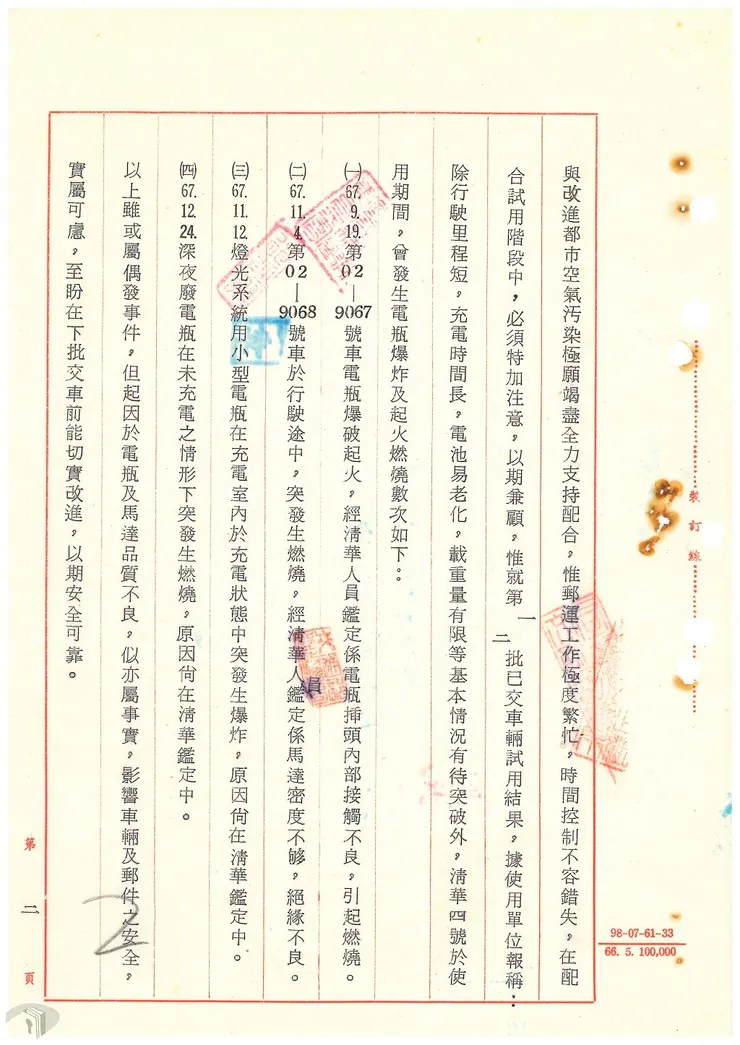 與改進都市空氣污染極願竭盡全力支持配合，惟郵運工作極度繁忙，時間控制不容錯失，在配
合試用階段中，必須特加注意，以期兼顧，惟就第一二批已交車輛試用結果，據使用單位報稱：
除行駛里程短，充電時間長，電池易老化，載重量有限等基本情況有待突破外，清華四號於使
用期間，曾發生電瓶爆炸及起火燃燒數次如下：
㈠67.9.19.第02－9067號車電瓶爆破起火，經清華人員鑑定係電瓶揷頭內部接觸不良，引起燃燒。
㈡67.11.4.第02－9068號車於行駛途中，突發生燃燒，經清華人員鑑定係馬達密度不够，絕緣不良。
㈢67.11.12.燈光系統用小型電瓶在充電室內於充電狀態中突發生爆炸，原因尙在清華鑑定中。
㈣67.12.24.深夜廢電瓶在未充電之情形下突發生燃燒，原因尙在清華鑑定中。
以上雖或屬偶發事件，但起因於電瓶及馬達品質不良，似亦屬事實，影響車輛及郵件之安全，
實屬可慮，至盼在下批交車前能切實改進，以期安全可靠。
裝訂線
98-07-61-33
66. 5. 100,000
第二頁
2